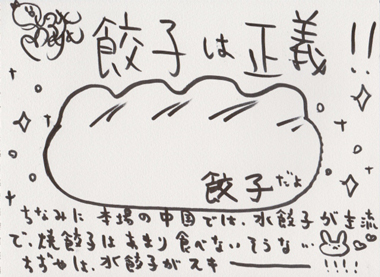 餃子は正義!!
餃子だよ
ちなみに本場の中国では、水餃子が主流
で、焼餃子はあまり食べないそうない
ちぢゃは、水餃子がスキ――!!!!